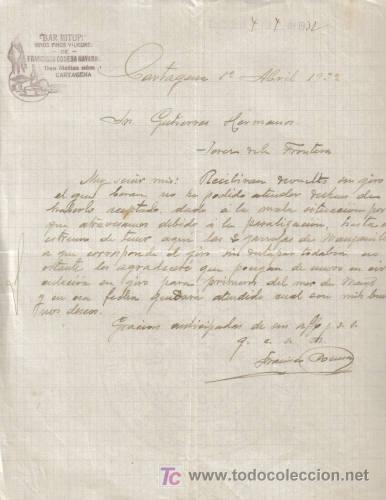 "BAR HITUP"
VINOS FINOS Y LICORES
DE
FRANCISCO CONESA NAVARRO
Don Matías núm.
CARTAGENA
7 1932
Cartagena 1º Abril 1932
Sr. Gutierrez Hermanos
Jerez de la Frontera
Muy señor mio: Recibiran devuelto su giro
el qual haran no he podido atender despues de
haberlo aceptado, dado á la mala situacion por
que atravesamos debido á la paralizacion, hasta el
estremo de tener aqui las 2 garrafas de Manzanilla
a que corresponde el giro sin destapar todabia no
ostante les agradeceré que pongan de nuevo en cir
culacion su giro para primeros del mes de Mayo
y en esa fecha quedará atendido cual son mis bue
nos deseos.
Gracias anticipadas de su affº s. s.
q. e. s. m.
Francisco Conesa
TC
www.todocoleccion.net